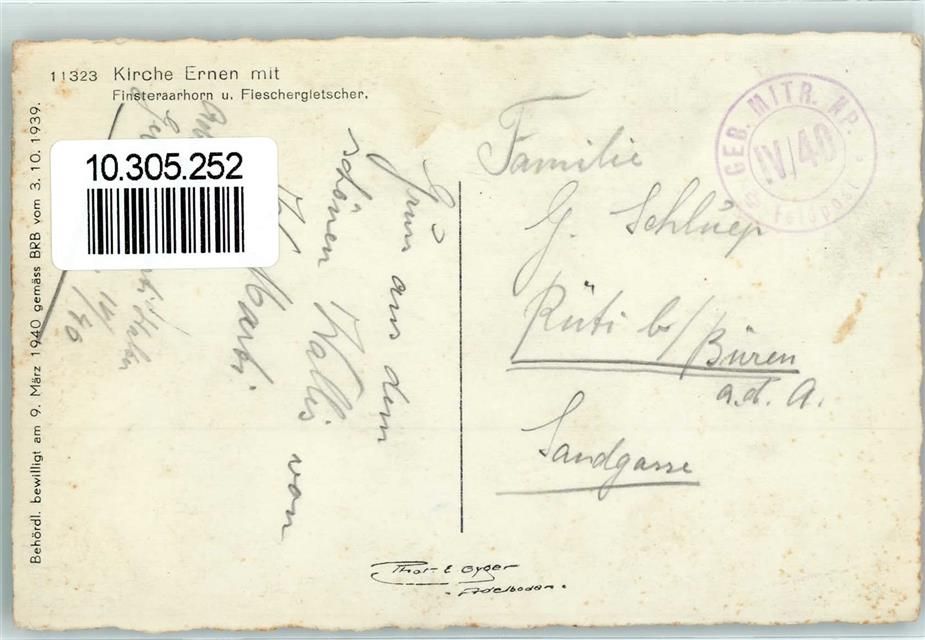 11323 Kirche Ernen mit
Finsteraarhorn u. Fieschergletscher.
Behördl. bewilligt am 9. März 1940 gemäss BRB vom 3. 10. 1939.
10.305.252
Gruss aus dem
schönen Wallis von
IV/40
GEB. MITR. KP.
IV/40
Feldpost
Familie
G. Schlüep
Rüti b/Büren
a.d. A.
Sandgasse
Phot. E. Gyger
Adelboden.